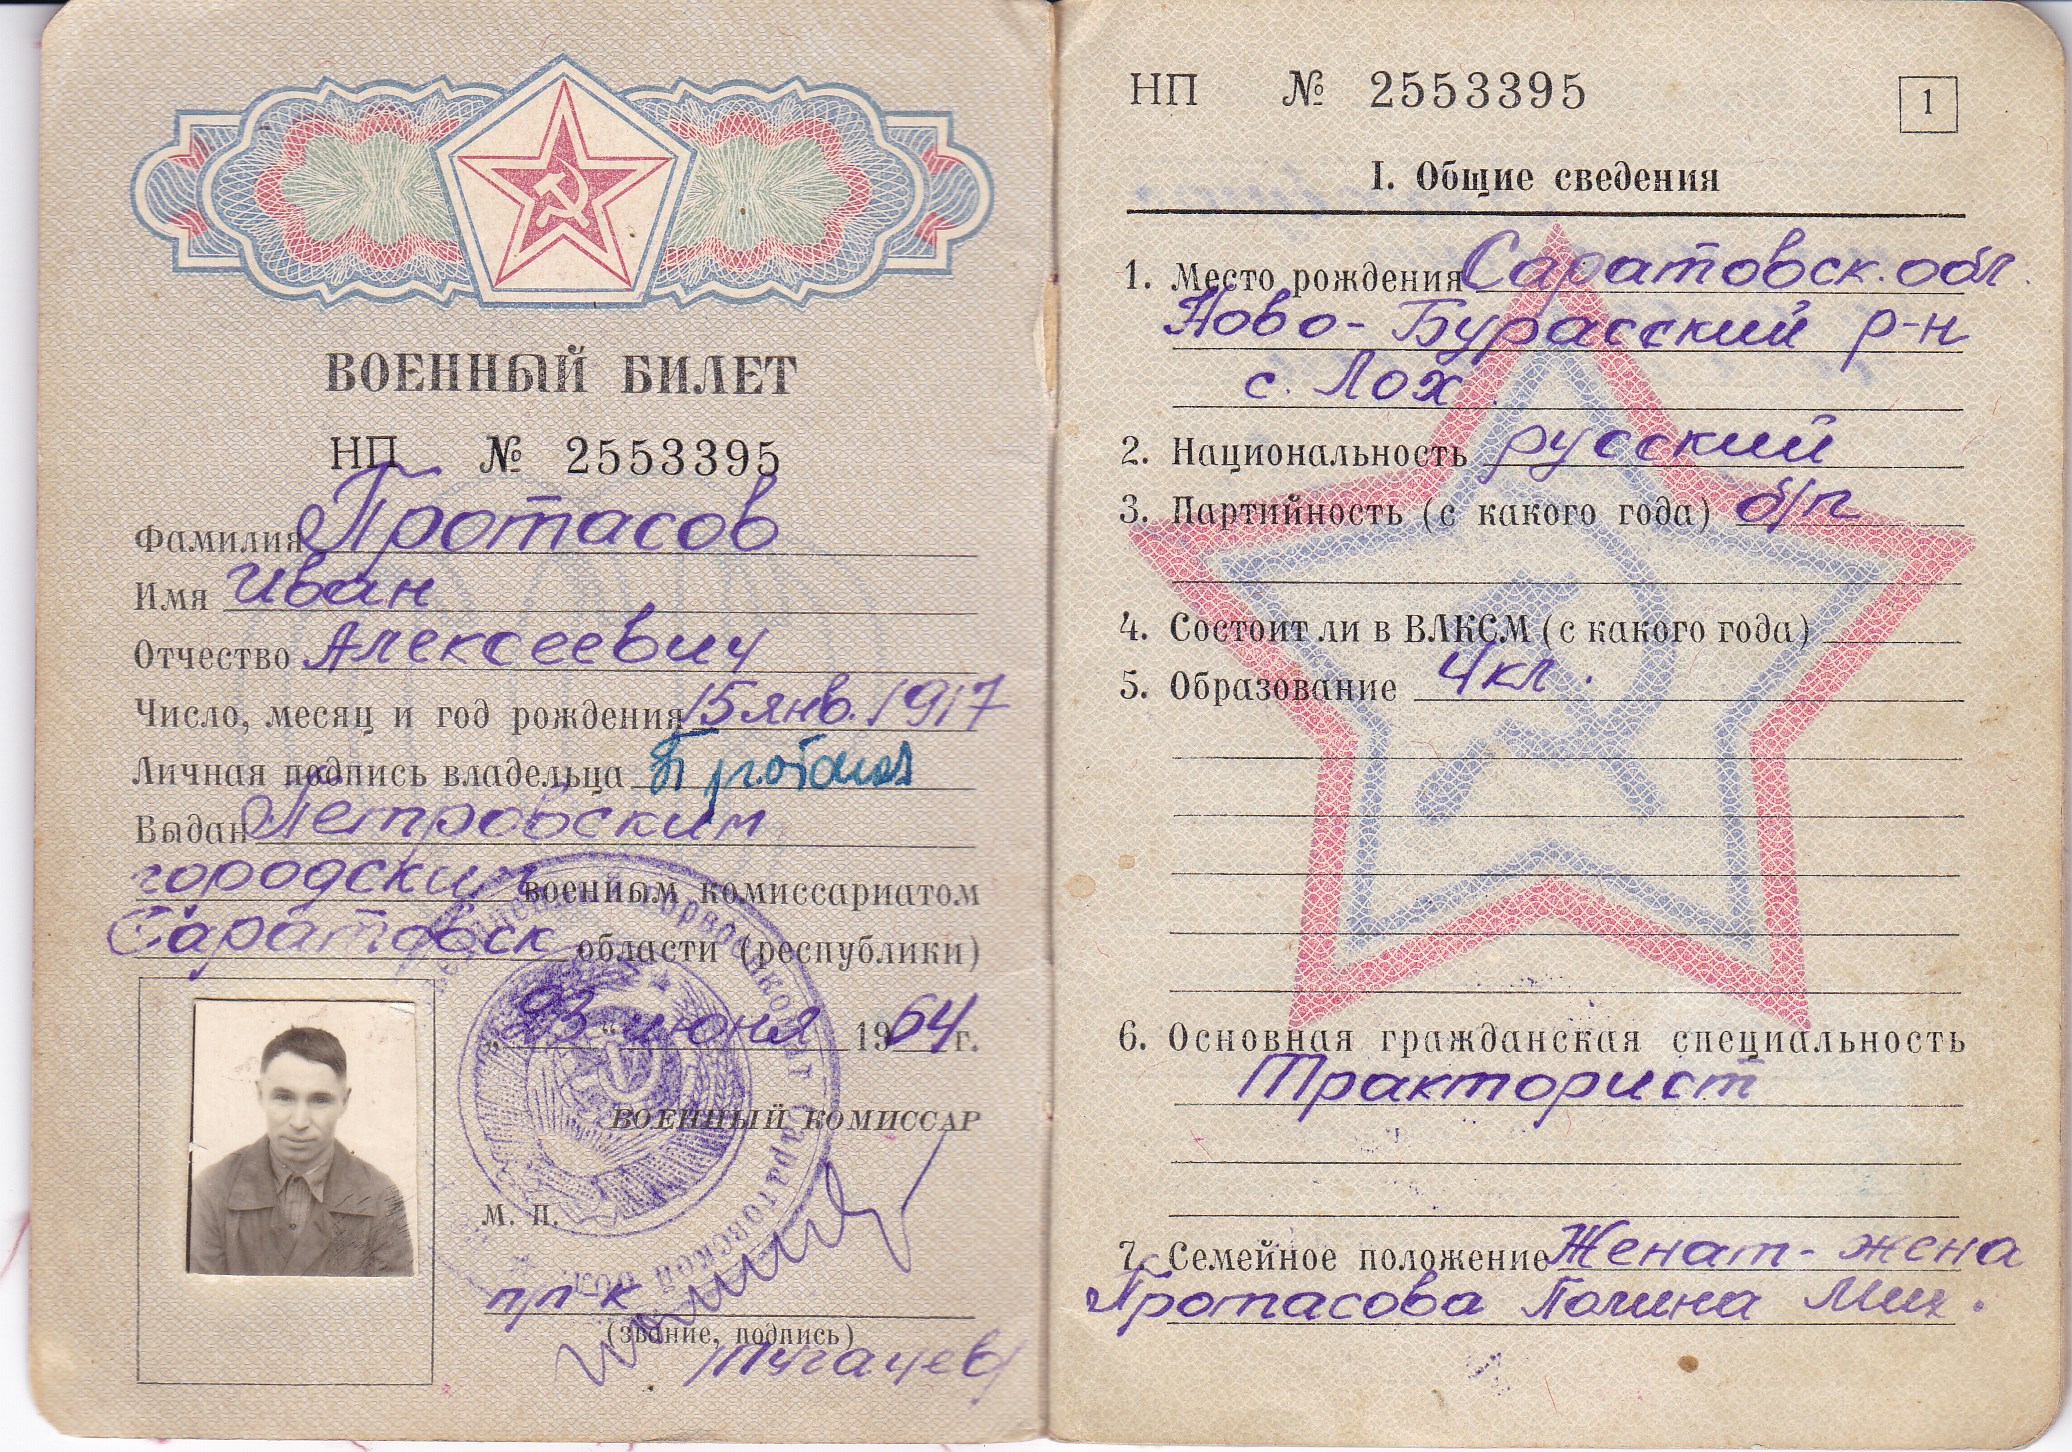 ВОЕННЫЙ БИЛЕТ
НП № 2553395
Фамилия Протасов
Имя Иван
Отчество Алексеевич
Число, месяц и год рождения 15 янв. 1917
Личная подпись владельца Протасов
Выдан Петровским
городским военным комиссариатом
Саратовск области (республики)
„23“ июня 1964 г.
ВОЕННЫЙ КОМИССАР
М. П.
п/п-к
(звание, подпись)
/Пугачев/
НП № 2553395
1
I. Общие сведения
1. Место рождения Саратовск. обл.
Ново-Бурасский р-н
с. Лох.
2. Национальность русский
3. Партийность (с какого года) б/п
4. Состоит ли в ВЛКСМ (с какого года)
5. Образование 4 кл.
6. Основная гражданская специальность
Тракторист
7. Семейное положение Женат - жена
Протасова Полина Мих.